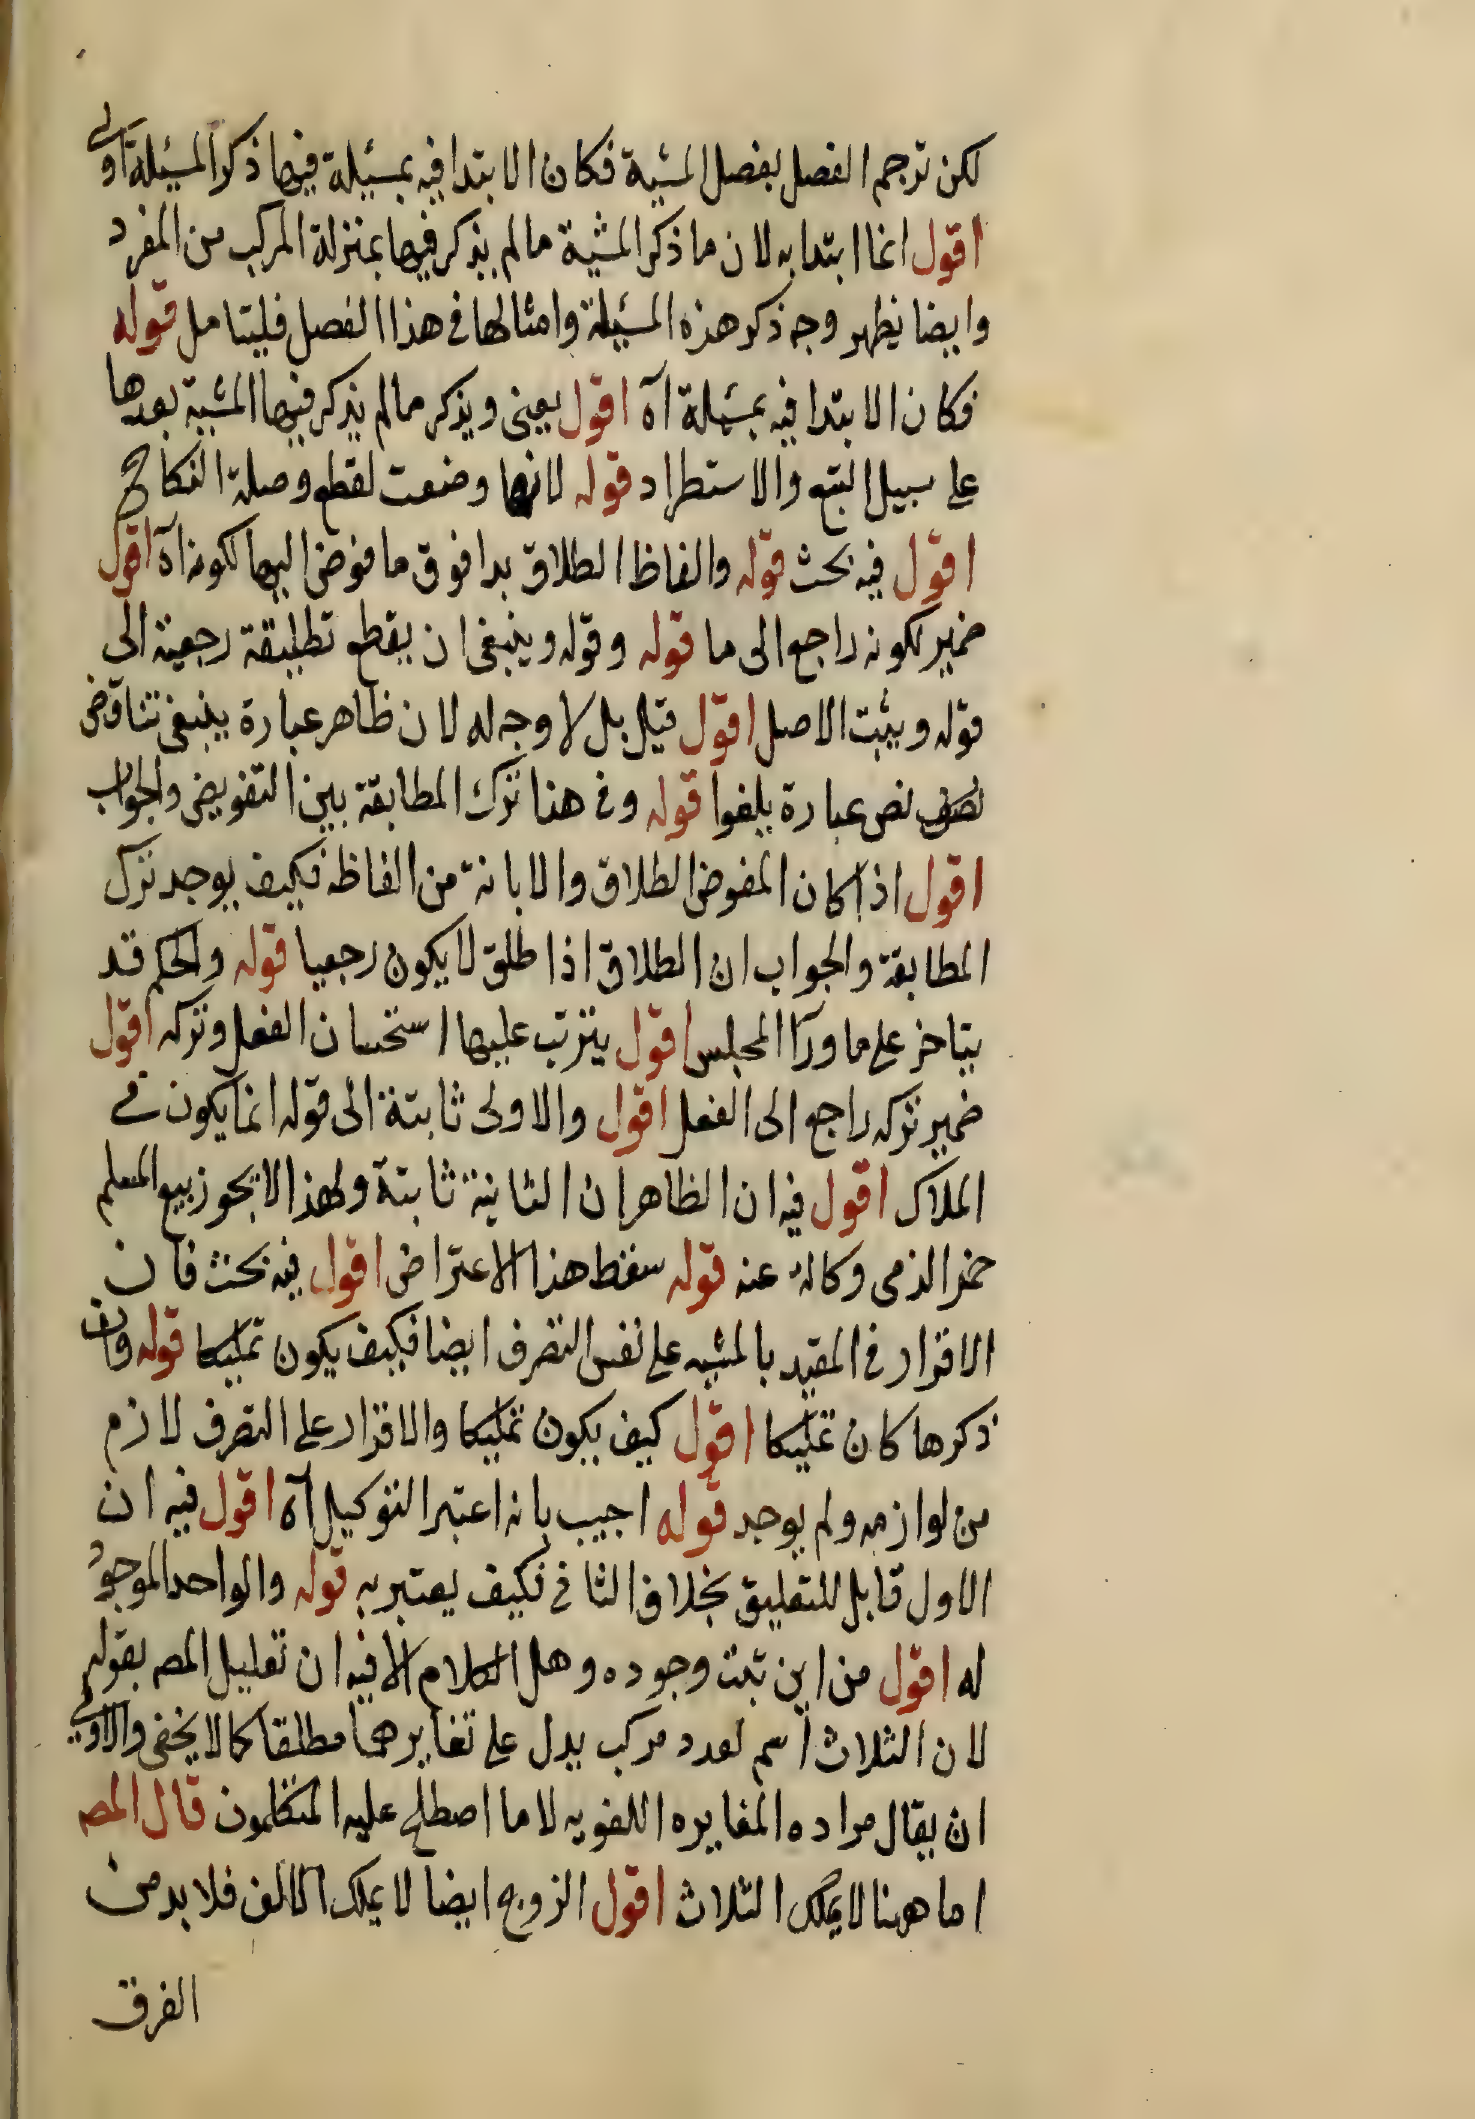 لكن ترجم الفصل بفصل المشية فكان الابتدا فيه بمسئلة فيها ذكر المسئلة اولى
اقول انما ابتدا به لان ما ذكر المشية ما لم يذكر فيها بمنزلة المركب من المفرد
وايضا يظهر وجه ذكر هذه المسئلة وامثالها فى هذا الفصل فليتامل قوله
فكان الابتدا فيه بمسئلة آه اقول يعنى ويذكر ما لم يذكر فيها المشية بعدها
على سبيل التبع والاستطراد قوله لانها وضعت لقطع وصلة النكاح
اقول فيه بحث قوله والفاظ الطلاق بدا فوق ما فوض اليها لكونه آه اقول
ضمير لكونه راجع الى ما قوله وقوله وينبغى ان يقطع تطليقة رجعية الى
قوله ويثبت الاصل اقول قيل بل لا وجه له لان ظاهر عبارة ينبغى تناقض
نص عبارة يلغوا قوله وفى هنا ترك المطابقة بين التفويض والجواب
اقول اذا كان المفوض الطلاق والابانة من الفاظه فكيف يوجد ترك
المطابقة والجواب ان الطلاق اذا طلق لا يكون رجعيا قوله والحكم قد
يتاخر على ما ورآ المجلس اقول يترتب عليها استحسان الفعل وتركه اقول
ضمير تركه راجع الى الفعل اقول والاولى ثابتة الى قوله انما يكون فى
الملاك اقول فيه ان الظاهر ان الثانية ثابتة ولهذا لا يجوز بيع المسلم
خمر الذمى وكالة عنه قوله سقط هذا الاعتراض اقول فيه بحث فان
الاقرار فى المقيد بالمشيه على نفس التصرف ايضا فكيف يكون تمليكا قوله وان
ذكرها كان تمليكا اقول كيف يكون تمليكا والاقرار على التصرف لازم
من لوازمه ولم يوجد قوله اجيب بانه اعتبر التوكيل آه اقول فيه ان
الاول قابل للتعليق بخلاف الثانى فكيف يعتبر به قوله والواحد الموجود
له اقول من اين ثبت وجوده وهل الكلام الا فيه ان تعليل المصـ بقوله
لان الثلاث اسم لعدد مركب يدل على تغايرهما مطلقا كما لا يخفى والاولى
ان يقال مراده المغايره اللغويه لا ما اصطلح عليه المتكلمون قال المصـ
اما ههنا لا يملك الثلاث اقول الزوج ايضا لا يملك الالف فلا بد من
الفرق